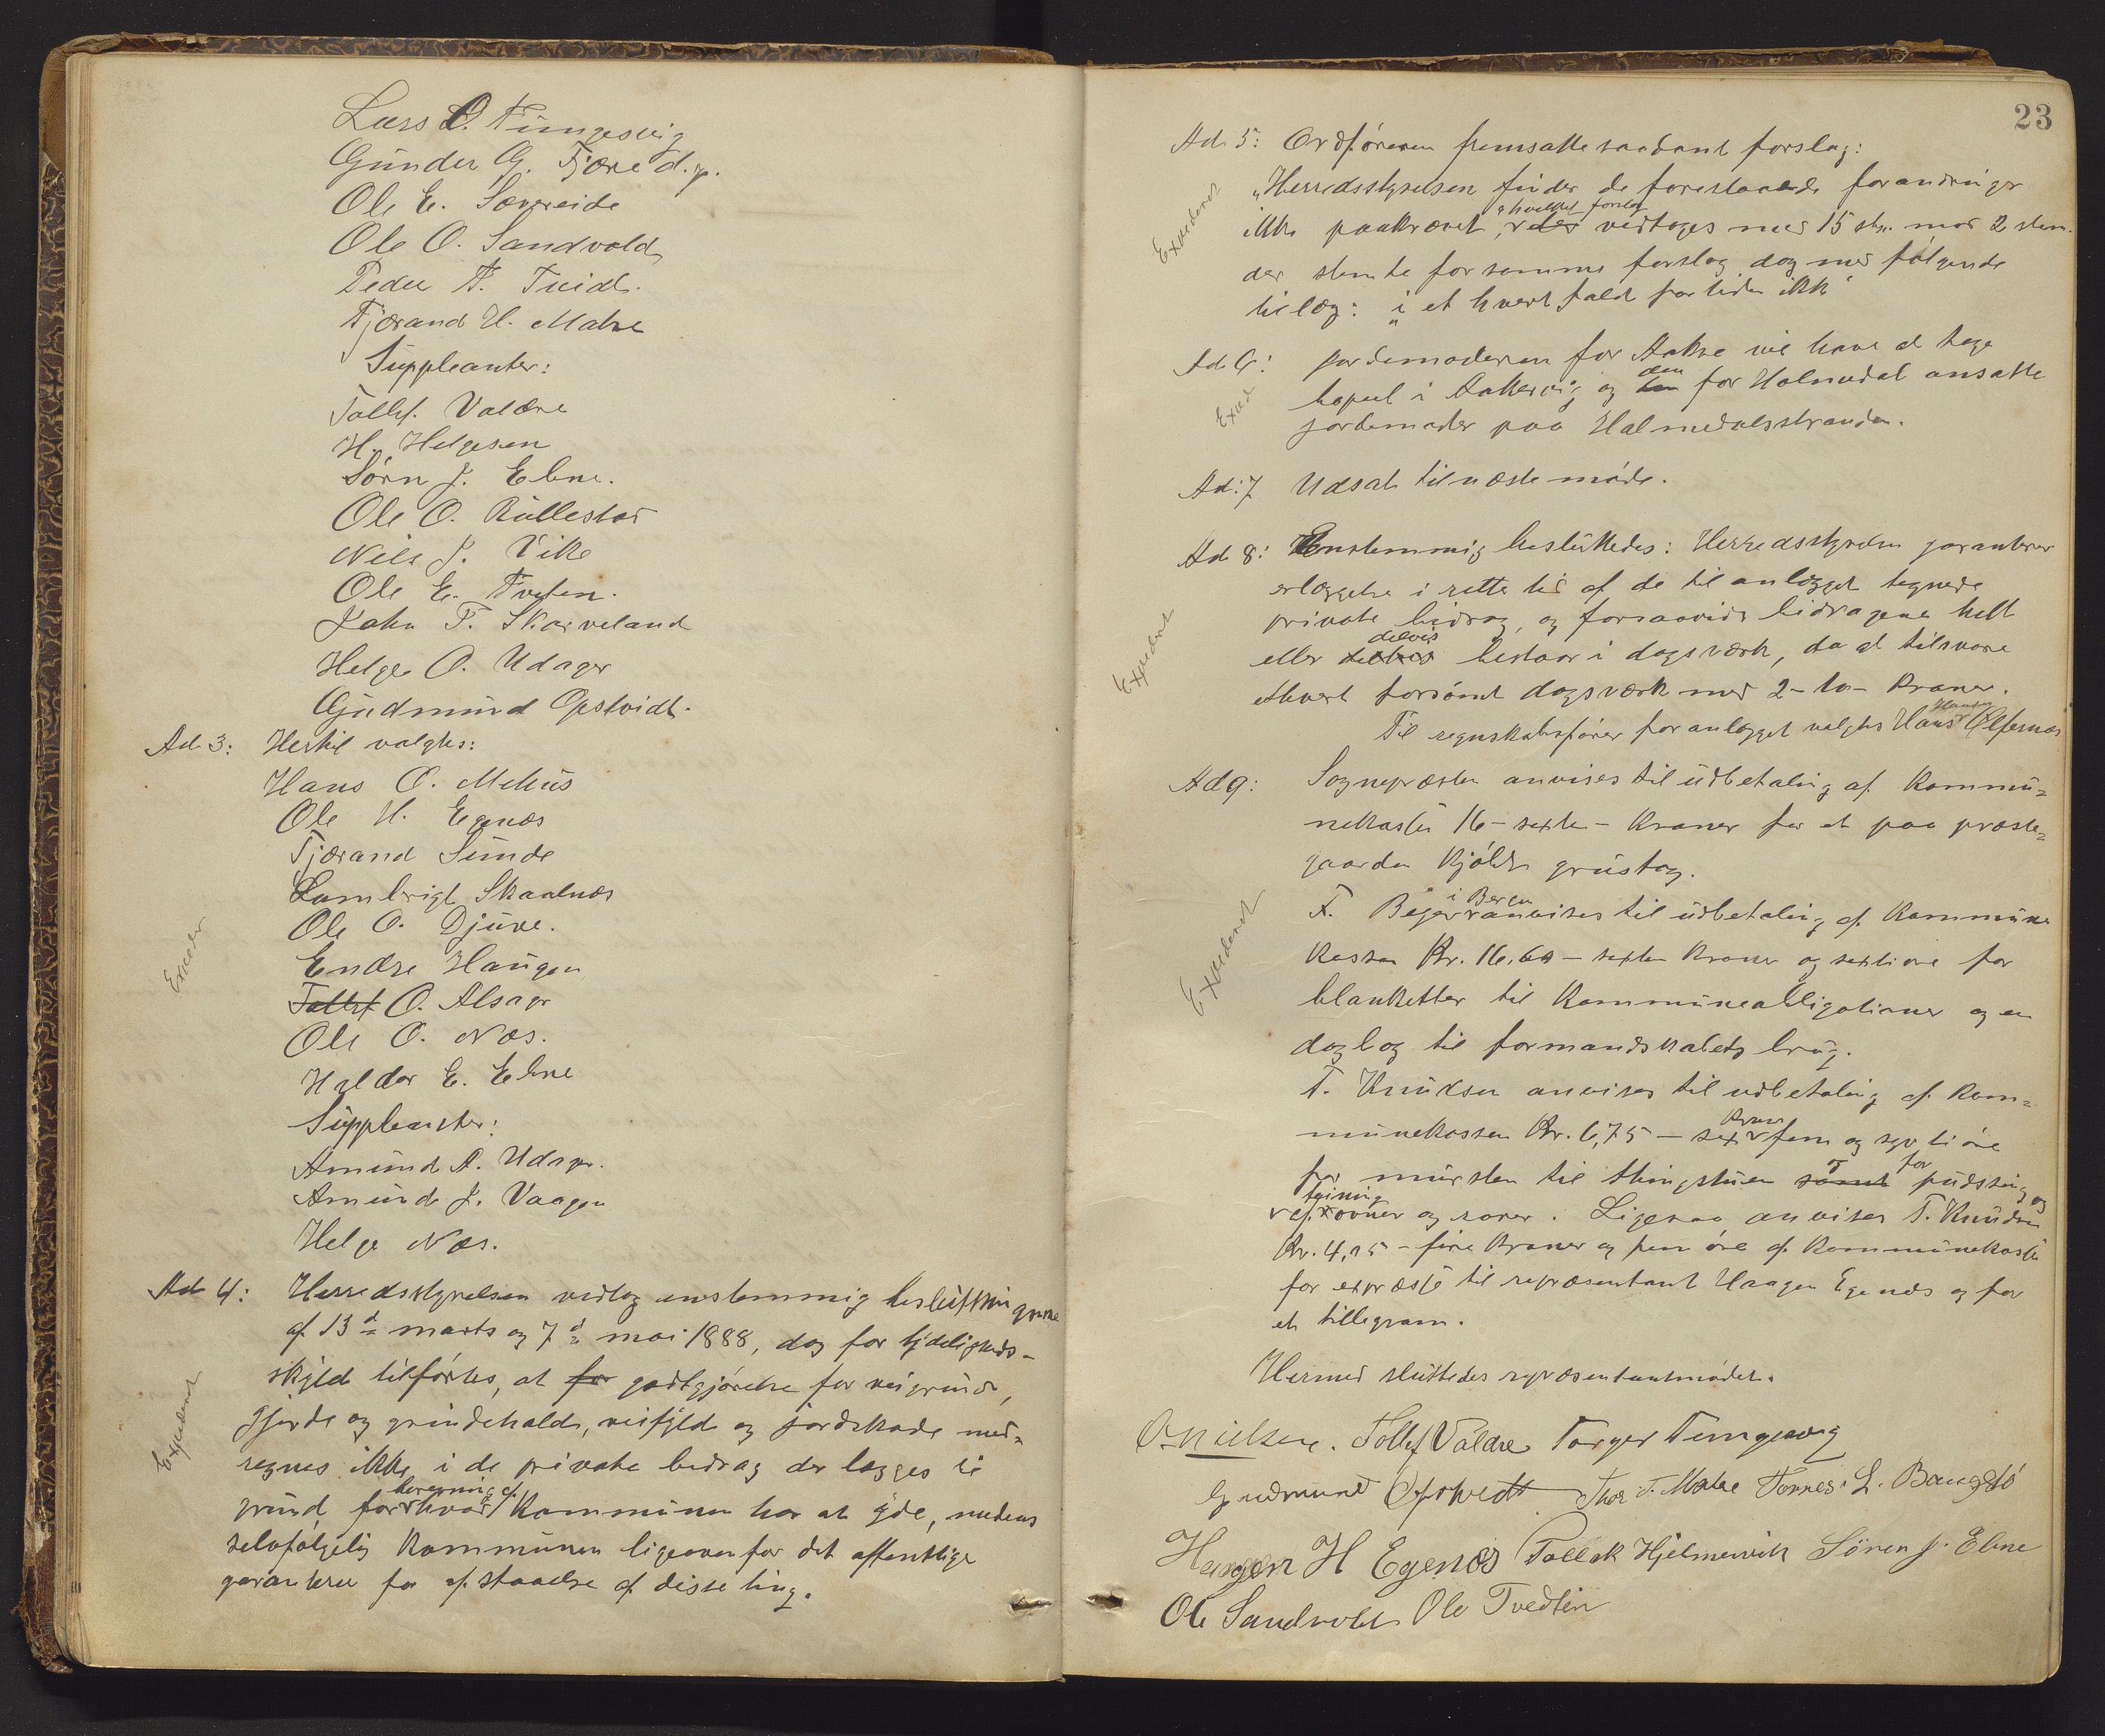 Lars O. Tungesvig
Gunder G. Tjære d.y.
Ole E. Sævereide
Ole O. Sandvold
Peder A. Tveid
Tjærand H. Matre
Suppleanter:
Tollef Valdre
H. Helgesen
Sørn J. Ebne.
Ole O. Rullestad
Nils J. Vike
Ole E. Tveten.
John T. Skarveland
Helge O. Udager
Gudmund Opstvidt.
Ad 3: Hertil valgtes:
Hans O. Mehus
Ole H. Egenæs
Tjærand Sunde
Lambrigt Skaalnæs
Ole O. Djuve.
Endre Haugen
Tollef O. Alsager
Ole O. Næs.
Haldor E. Ebne
Suppleanter:
Amund A. Udager.
Amund J. Vaagen
Helge Næs.
Ad 4: Herredsstyrelsen vedtog enstemmig beslutningerne
af 13de marts og 7de mai 1888, dog for tydeligheds-
skyld tilførtes, at for godtgjørelse for veigrund,
gjerde og grindehold, veifyld og jordskade med-
regnes ikke i de private bidrag der lægges til
grund for beregning af hvad kommunen har at yde, medens
selvfølgelig kommunen ligeoverfor det offentlige
garanterer for afstaaelse af disse ting.
Expederet
23
Ad 5: Ordføreren fremsatte saadant forslag:
"Herredsstyrelsen finder de foreslaaede forandringer
ikke paakrævet", hvilket forslag vedtoges med 15 stm. mod 2 stem.
der stemte for samme forslag dog med følgende
tillæg: "i et hvert fald for tiden ikke"
Expederet
Ad 6: Jordemoderen for Aakre vil have at tage
bopæl i Aakervig og den for Holmedal ansatte
jordemoder paa Holmedalsstranden.
Exped
Ad: 7 Udsat til næste møde.
Ad 8: Enstemmig besluttedes: Herredsstyrelsen garanterer
erlæggelse i rette tid af de til anlægget tegnede
private bidrag, og forsaavidt bidragene helt
eller delvis bestaar i dagsværk, da at tilsvare
ethvert forsømt dagsværk med 2 - to - kroner.
Til regnskabsfører for anlægget valgtes Hans Hansen Ølfernæs
Expederet
Ad 9: Sognepræsten anvises til udbetaling af kommu=
nekassen 16 - sexten - kroner for et paa præste=
gaarden kjøbt grustag.
F. Beyer i Bergen anvises til udbetaling af kommune
kassen Kr. 16,60 - sexten kroner og sexti øre for
blanketter til kommuneobligationer og en
dagbog til formandskabets brug.
Expederet
T. Knudsen anvises til udbetaling af kom=
munekassen Kr. 6,75 - sex kroner fem og sytti øre
for mursten til thingstuen samt for pudsning og
af ovner og rører. Ligesaa anvises T. Knudsen
Kr. 4,05 - fire kroner og fem øre af kommunekassen
for expresse til repræsentant Haagen Egenæs og for
et tillegram.
Hermed sluttedes repræsentantmødet.
O. Nielsen. Tollef Valdre Torger Tungesvig
Gudmund Opstvedt Thor T. Matre Tønnes L. Baugstø
Haagen H Egenæs Tollak Hjelmervik Søren J. Ebne
Ole Sandvold Ole Tvedten